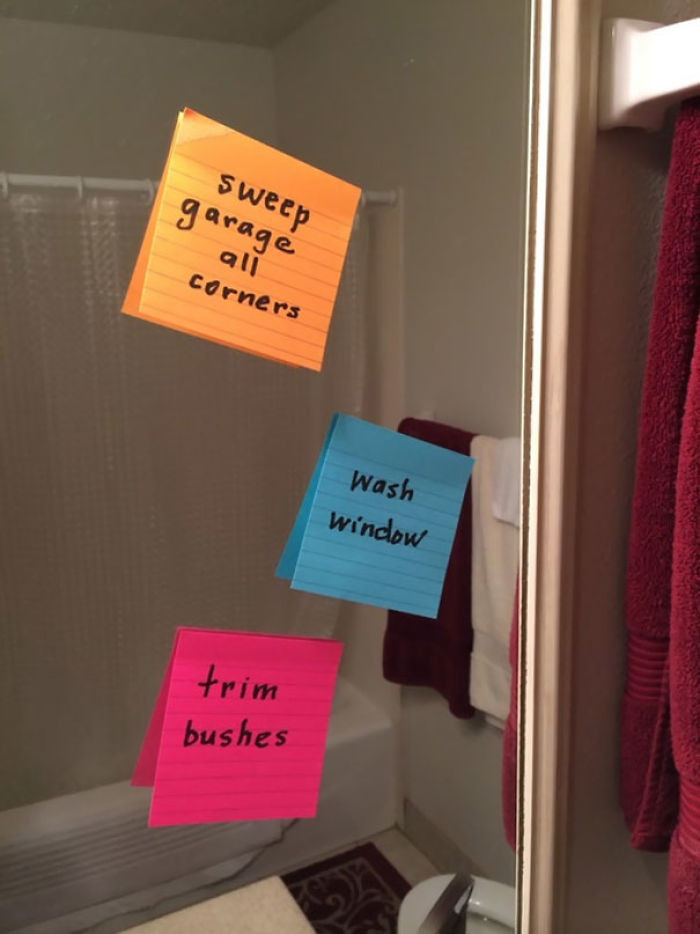 sweep
garage
all
corners
wash
window
trim
bushes